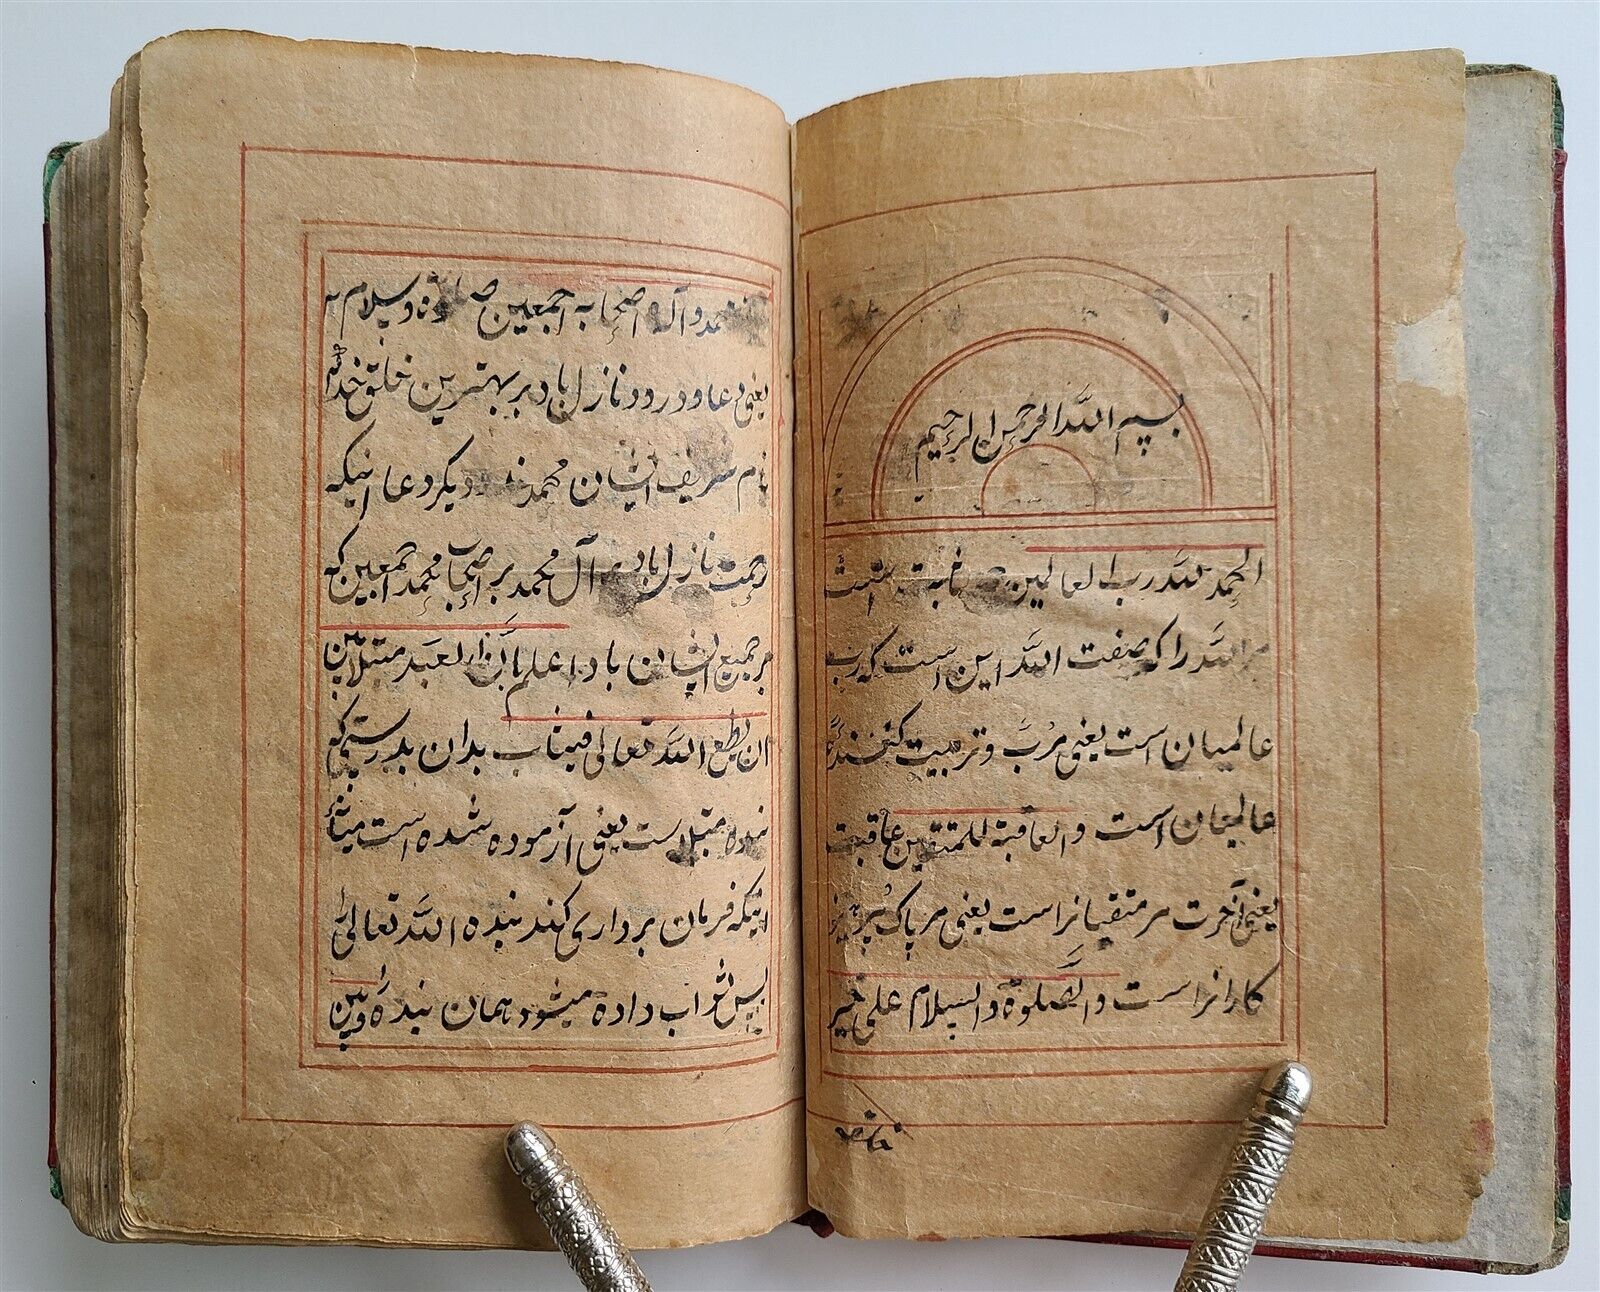 بسم الله الرحمن الرحیم
الحمد لله رب العالمین ثابت است
مر الله را که صفت الله این است که رب
عالمیان است یعنی مرب و تربیت کننده
عالمیان است والعاقبة للمتقین عاقبت
یعنی آخرت مر متقیانراست یعنی مر پاک پرهیز
کارانراست والصلوة والسلام علی خیر
محمد و آله اصحابه اجمعین صلوة و سلام
یعنی دعا و درود نازل باد بر بهترین خلق خدا
نام شریف ایشان محمد دیکر دعا اینکه
رحمت نازل باد بر آل محمد بر اصحاب محمد اجمعین که
بر جمیع ایشان باد اعلم بان العبد مبتلا بین
ان یطیع الله تعالی فیثاب بدان بدرستیکه
بنده مبتلا است یعنی آزموده شده است میان
اینکه فرمان برداری کند بنده الله تعالی را
پس ثواب داده میشود همان بنده و بین